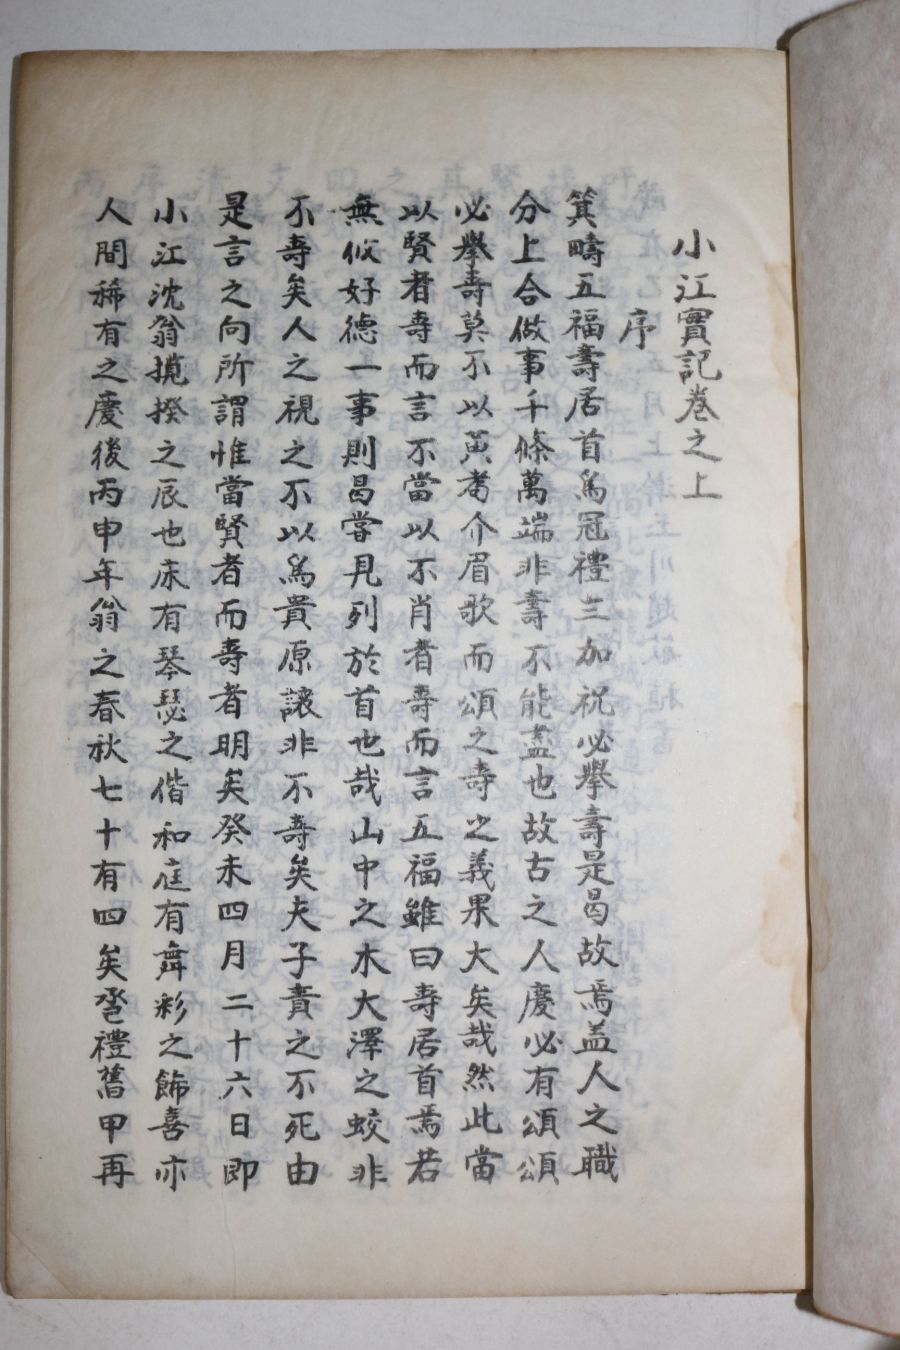 小江實記卷之上
序
箕疇五福壽居首爲冠禮三加祝必擧壽是曷故焉盖人之職
分上合做事千條萬端非壽不能盡也故古之人慶必有頌頌
必擧壽莫不以黃耈介眉歌而頌之壽之義果大矣哉然此當
以賢者壽而言不當以不肖者壽而言五福雖曰壽居首焉若
無攸好德一事則曷嘗見列於首也哉山中之木大澤之蛟非
不壽矣人之視之不以爲貴原讓非不壽矣夫子責之不死由
是言之向所謂惟當賢者而壽者明矣癸未四月二十六日卽
小江沈翁揽揆之辰也床有琴瑟之偕和庭有舞彩之餙喜亦
人間稀有之慶後丙申年翁之春秋七十有四矣巹禮舊甲再